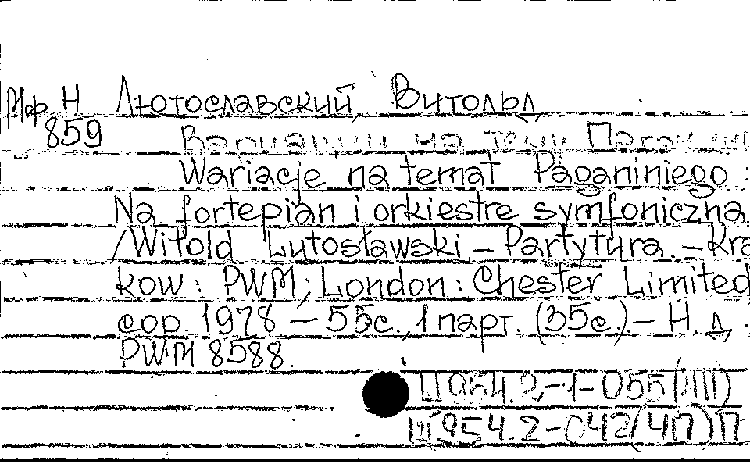 Инф. Н Лютославский Витольд
859 Вариации на тему Паганини
Wariacje na temat Paganiniego :
Na fortepian i orkiestrę symfoniczna
/Witold Lutosławski – Partytura. – Kra
kow : PWM ; London : Chester Limited
cop 1978 – 55с., 1 парт. (35с.) – Н. д.
PWM 8588.
Ц 954.2-1-055(ЗШ)
Ш 954.2-042(4П)П